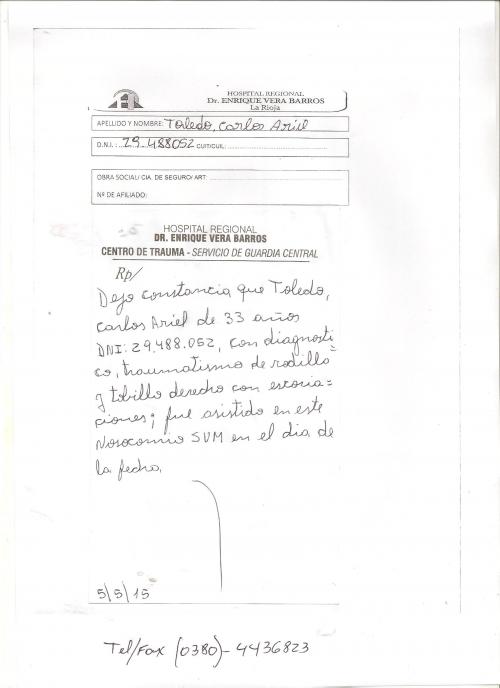 HOSPITAL REGIONAL
Dr. ENRIQUE VERA BARROS
La Rioja
APELLIDO Y NOMBRE: Toledo, Carlos Ariel
D.N.I. : 29.488052 CUIT/CUIL:
OBRA SOCIAL/ CIA. DE SEGURO/ ART:
Nº DE AFILIADO:
HOSPITAL REGIONAL
DR. ENRIQUE VERA BARROS
CENTRO DE TRAUMA - SERVICIO DE GUARDIA CENTRAL
Rp/
Dejo constancia que Toledo,
Carlos Ariel de 33 años
DNI: 29.488.052, con diagnosti=
co, traumatismo de rodilla
y tobillo derecho con escoria=
ciones; fue asistido en este
Nosocomio SVM en el dia de
la fecha.
5/5/15
Tel/Fax (0380)- 4436823